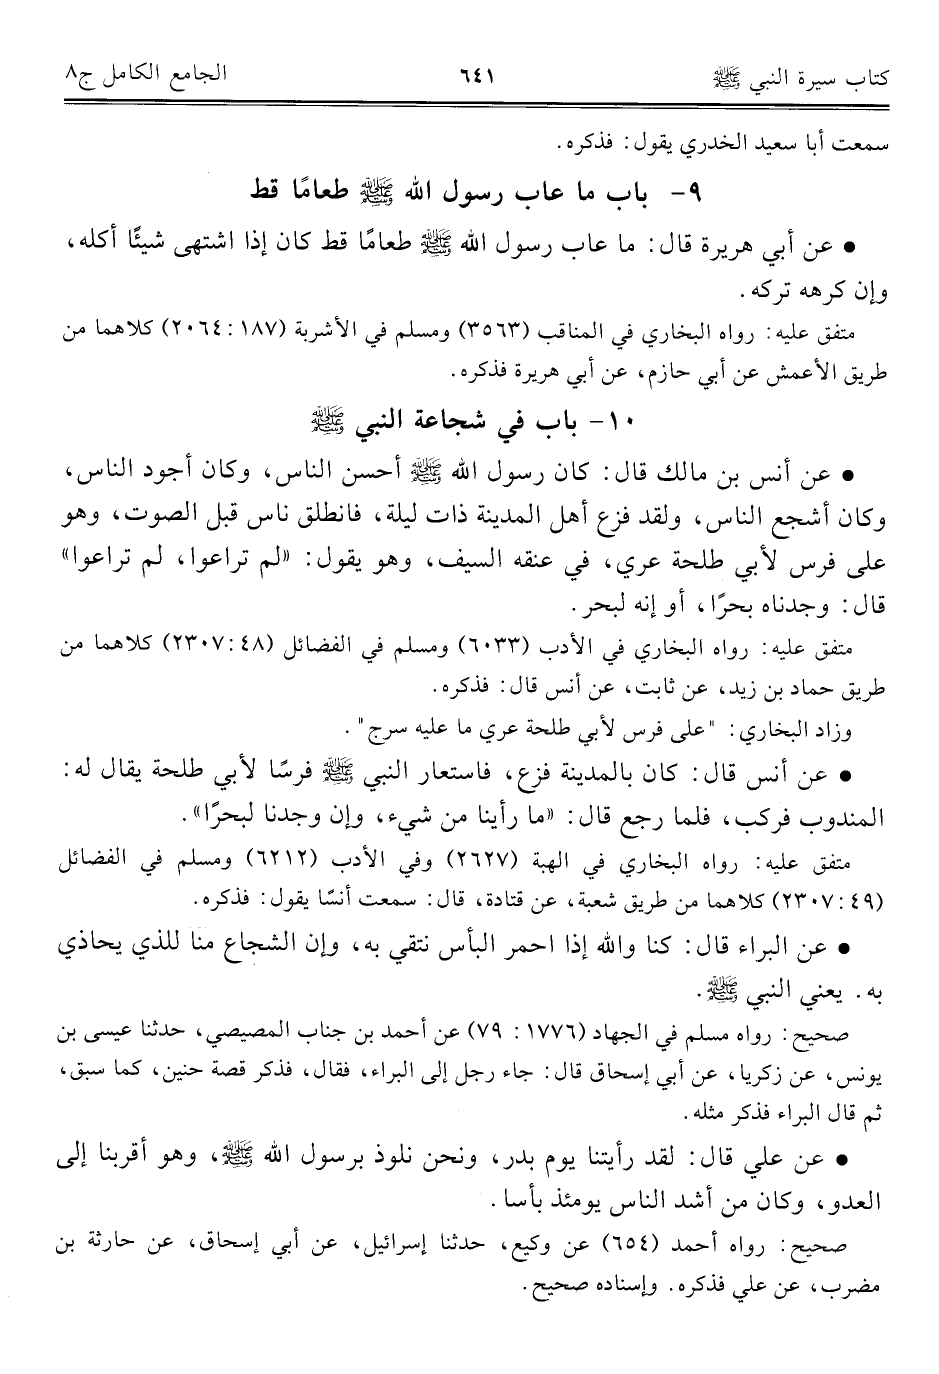 كتاب سيرة النبي ﷺ ٦٤١ الجامع الكامل ج٨
سمعت أبا سعيد الخدري يقول: فذكره.
٩- باب ما عاب رسول الله ﷺ طعامًا قط
• عن أبي هريرة قال: ما عاب رسول الله ﷺ طعامًا قط كان إذا اشتهى شيئًا أكله،
وإن كرهه تركه.
متفق عليه: رواه البخاري في المناقب (٣٥٦٣) ومسلم في الأشربة (١٨٧: ٢٠٦٤) كلاهما من
طريق الأعمش عن أبي حازم، عن أبي هريرة فذكره.
١٠- باب في شجاعة النبي ﷺ
• عن أنس بن مالك قال: كان رسول الله ﷺ أحسن الناس، وكان أجود الناس،
وكان أشجع الناس، ولقد فزع أهل المدينة ذات ليلة، فانطلق ناس قبل الصوت، وهو
على فرس لأبي طلحة عري، في عنقه السيف، وهو يقول: «لم تراعوا، لم تراعوا»
قال: وجدناه بحرًا، أو إنه لبحر.
متفق عليه: رواه البخاري في الأدب (٦٠٣٣) ومسلم في الفضائل (٤٨: ٢٣٠٧) كلاهما من
طريق حماد بن زيد، عن ثابت، عن أنس قال: فذكره.
وزاد البخاري: "على فرس لأبي طلحة عري ما عليه سرج".
• عن أنس قال: كان بالمدينة فزع، فاستعار النبي ﷺ فرسًا لأبي طلحة يقال له:
المندوب فركب، فلما رجع قال: «ما رأينا من شيء، وإن وجدنا لبحرًا».
متفق عليه: رواه البخاري في الهبة (٢٦٢٧) وفي الأدب (٦٢١٢) ومسلم في الفضائل
(٤٩: ٢٣٠٧) كلاهما من طريق شعبة، عن قتادة، قال: سمعت أنسًا يقول: فذكره.
• عن البراء قال: كنا والله إذا احمر البأس نتقي به، وإن الشجاع منا للذي يحاذي
به. يعني النبي ﷺ.
صحيح: رواه مسلم في الجهاد (١٧٧٦: ٧٩) عن أحمد بن جناب المصيصي، حدثنا عيسى بن
يونس، عن زكريا، عن أبي إسحاق قال: جاء رجل إلى البراء، فقال، فذكر قصة حنين، كما سبق،
ثم قال البراء فذكر مثله.
• عن علي قال: لقد رأيتنا يوم بدر، ونحن نلوذ برسول الله ﷺ، وهو أقربنا إلى
العدو، وكان من أشد الناس يومئذ بأسا.
صحيح: رواه أحمد (٦٥٤) عن وكيع، حدثنا إسرائيل، عن أبي إسحاق، عن حارثة بن
مضرب، عن علي فذكره. وإسناده صحيح.